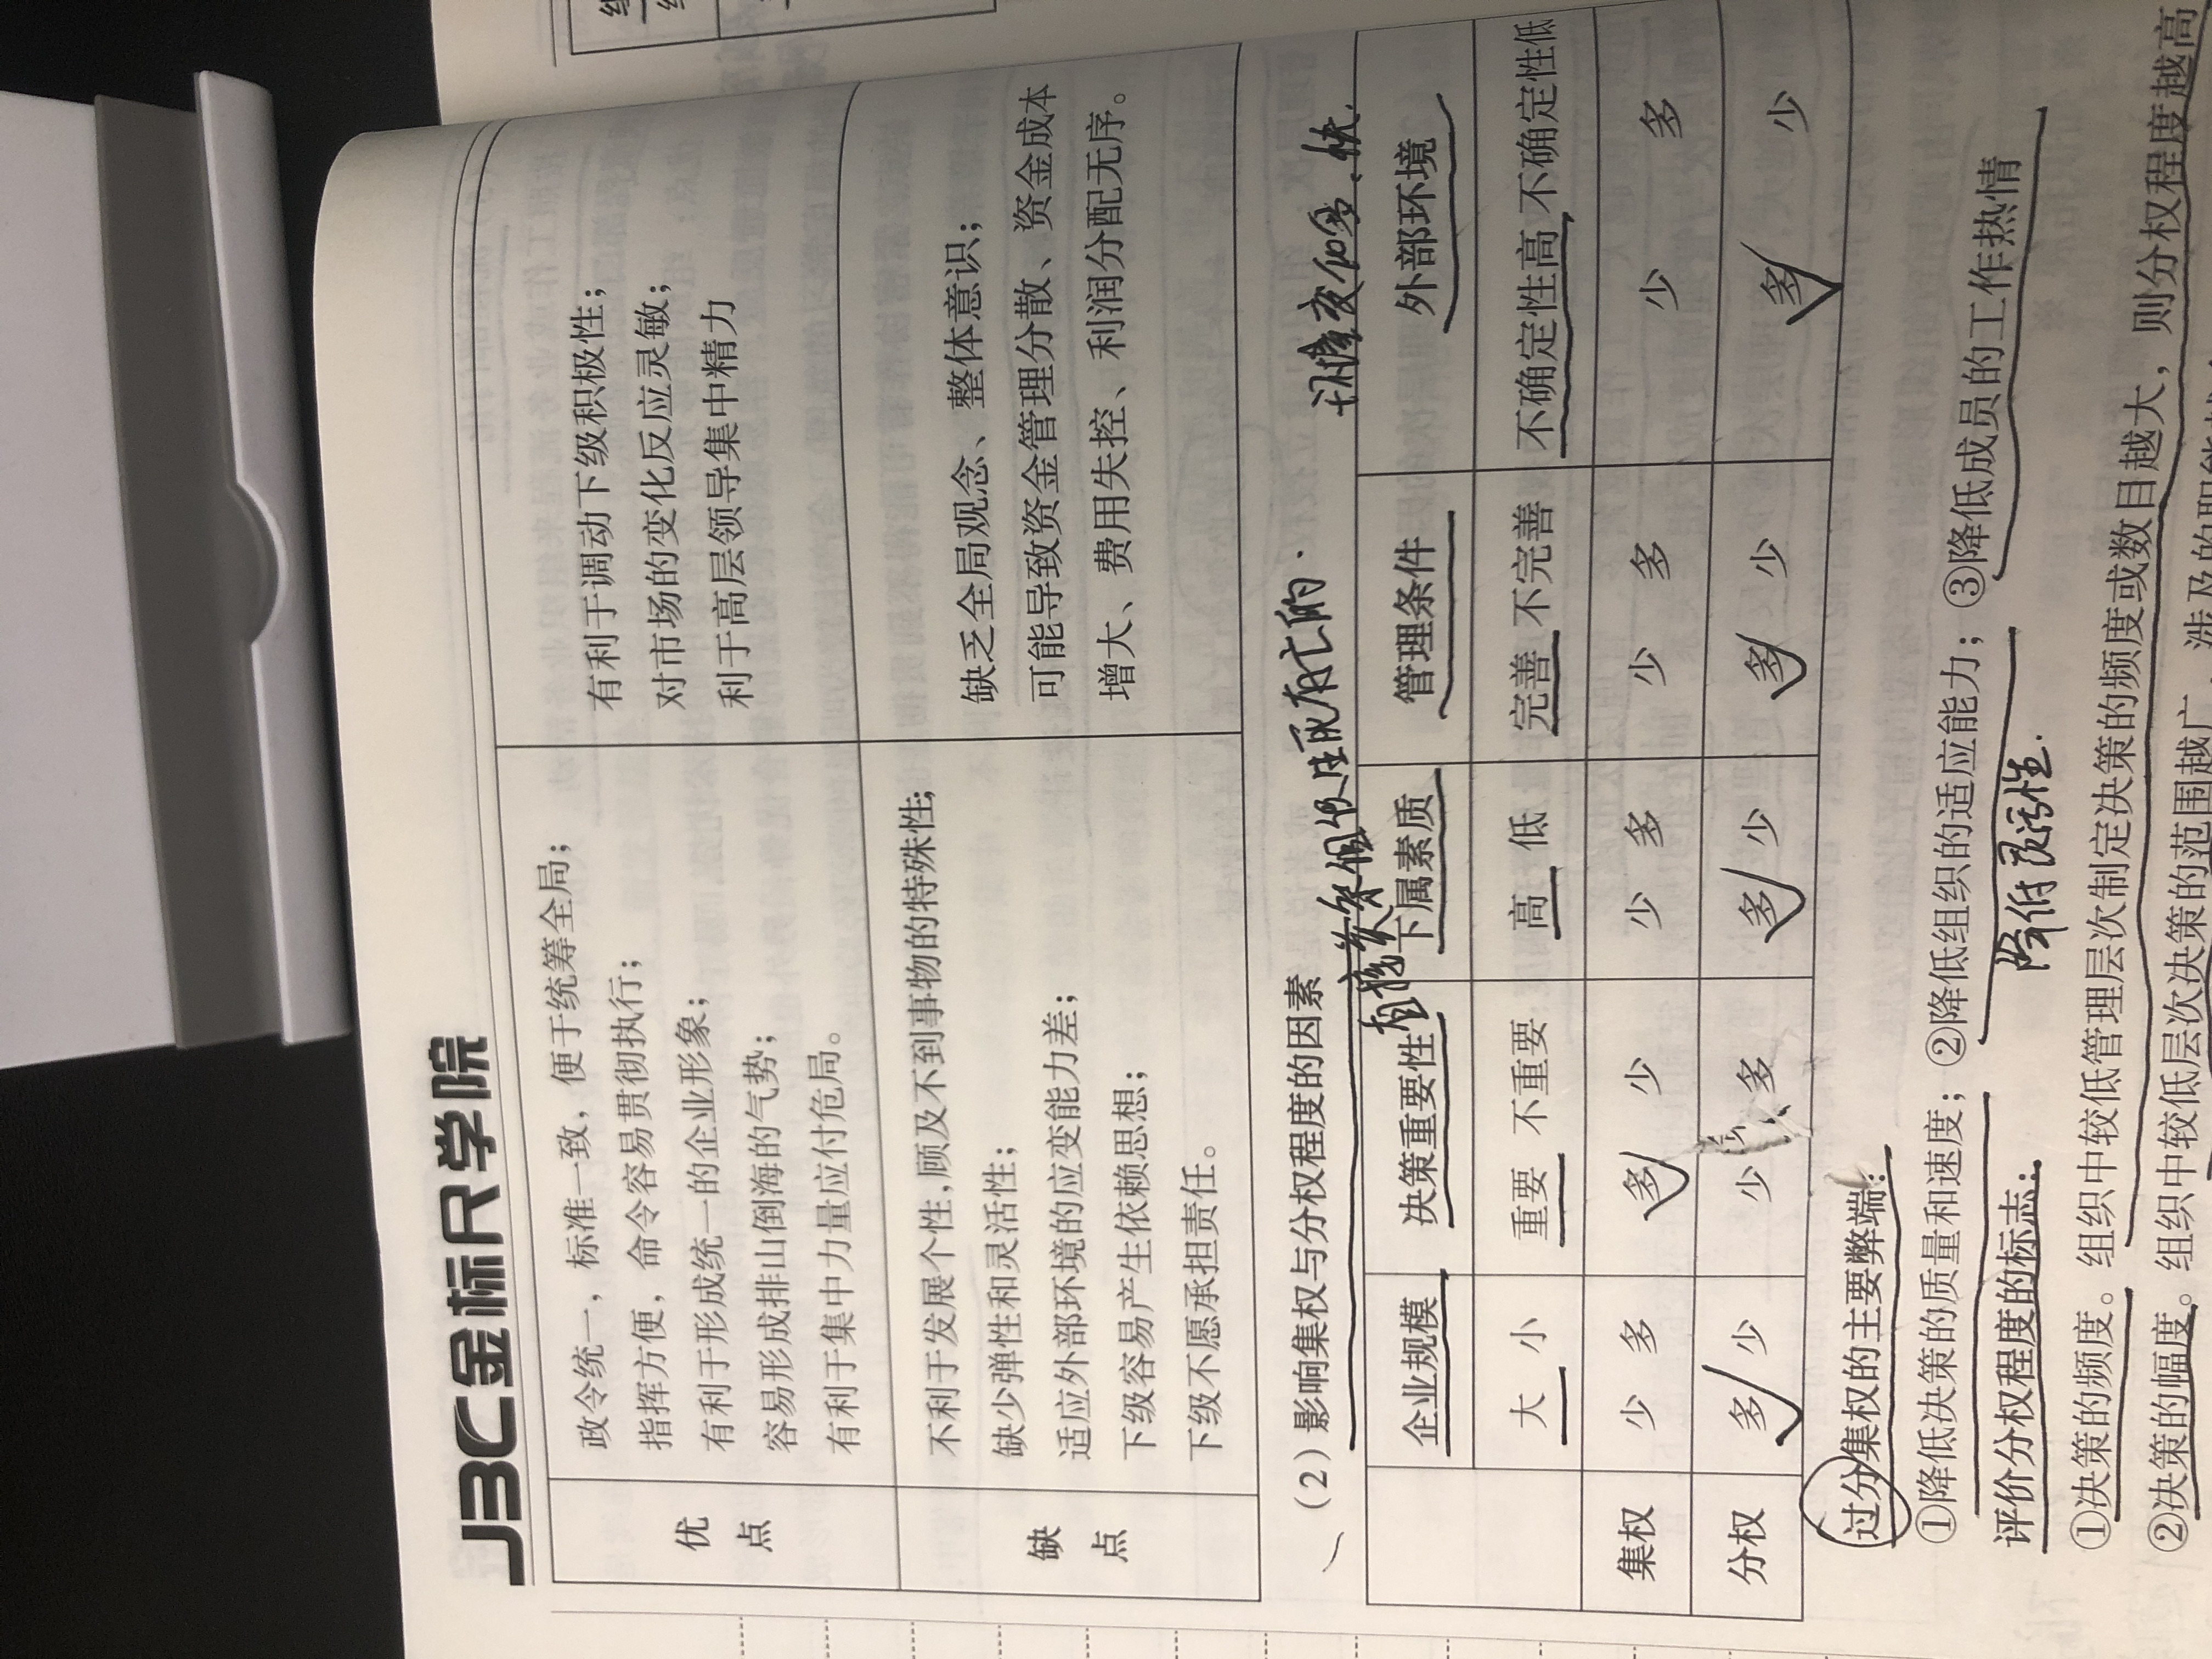 JBC金标尺学院
优点
政令统一，标准一致，便于统筹全局；
指挥方便，命令容易贯彻执行；
有利于形成统一的企业形象；
容易形成排山倒海的气势；
有利于集中力量应付危局。
有利于调动下级积极性；
对市场的变化反应灵敏；
利于高层领导集中精力
缺点
不利于发展个性,顾及不到事物的特殊性；
缺少弹性和灵活性；
适应外部环境的应变能力差；
下级容易产生依赖思想；
下级不愿承担责任。
缺乏全局观念、整体意识；
可能导致资金管理分散、资金成本
增大、费用失控、利润分配无序。
（2）影响集权与分权程度的因素
企业规模 决策重要性 下属素质 管理条件 外部环境
大 小 重要 不重要 高 低 完善 不完善 不确定性高 不确定性低
集权 少 多 多 少 少 多 少 多 少 多
分权 多 少 少 多 多 少 多 少 多 少
过分集权的主要弊端：
①降低决策的质量和速度；②降低组织的适应能力；③降低成员的工作热情
降低灵活性.
评价分权程度的标志：
①决策的频度。组织中较低管理层次制定决策的频度或数目越大，则分权程度越高
②决策的幅度。组织中较低层次决策的范围越广，涉及的职能